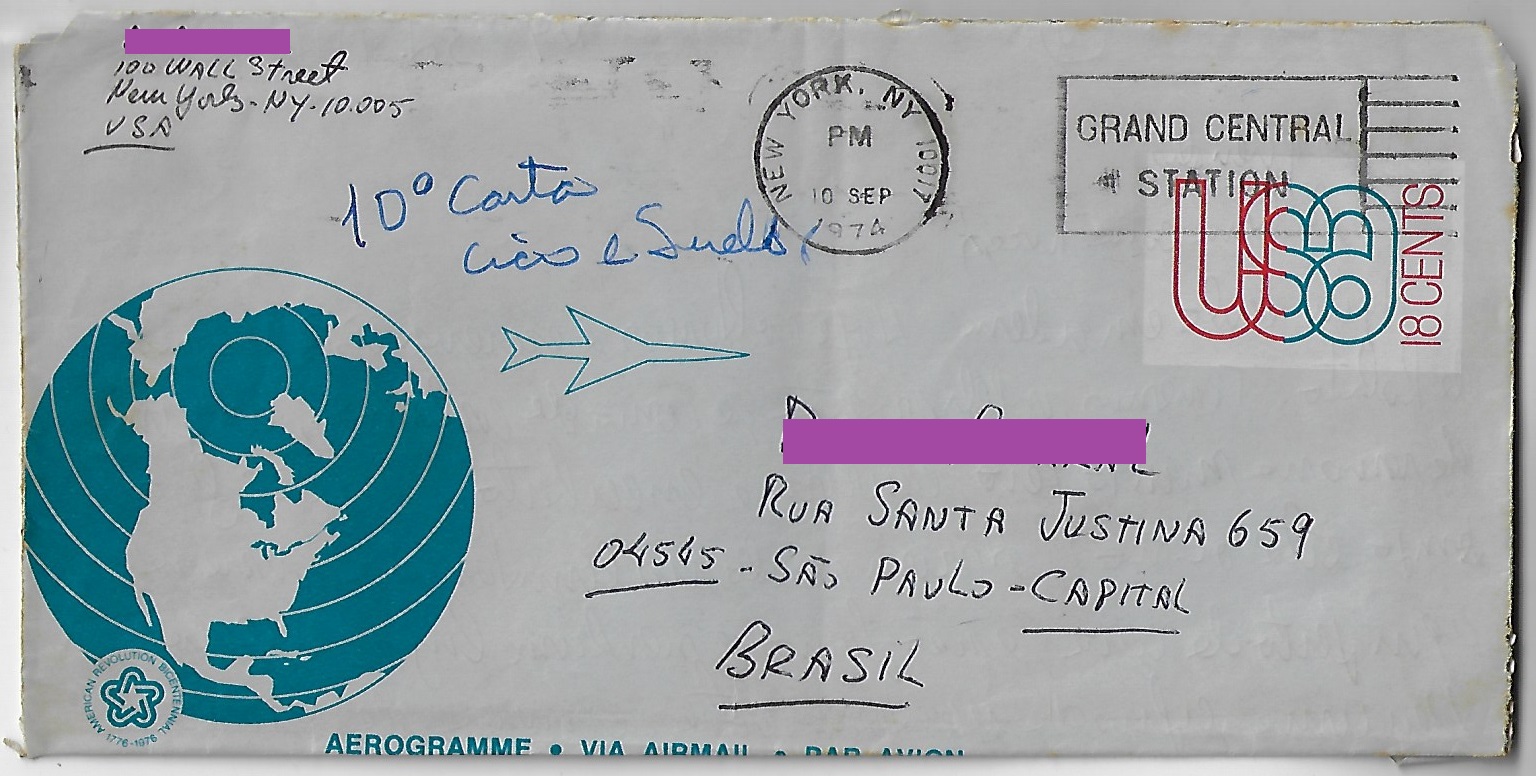 100 WALL Street
New York - NY - 10.005
USA
NEW YORK, NY 10017
PM
10 SEP
1974
GRAND CENTRAL
STATION
USA
18 CENTS
10º Carta
e
RUA SANTA JUSTINA 659
04545 - SÃO PAULO - CAPITAL
BRASIL
AMERICAN REVOLUTION BICENTENNIAL
1776-1976
AEROGRAMME • VIA AIRMAIL • PAR AVION